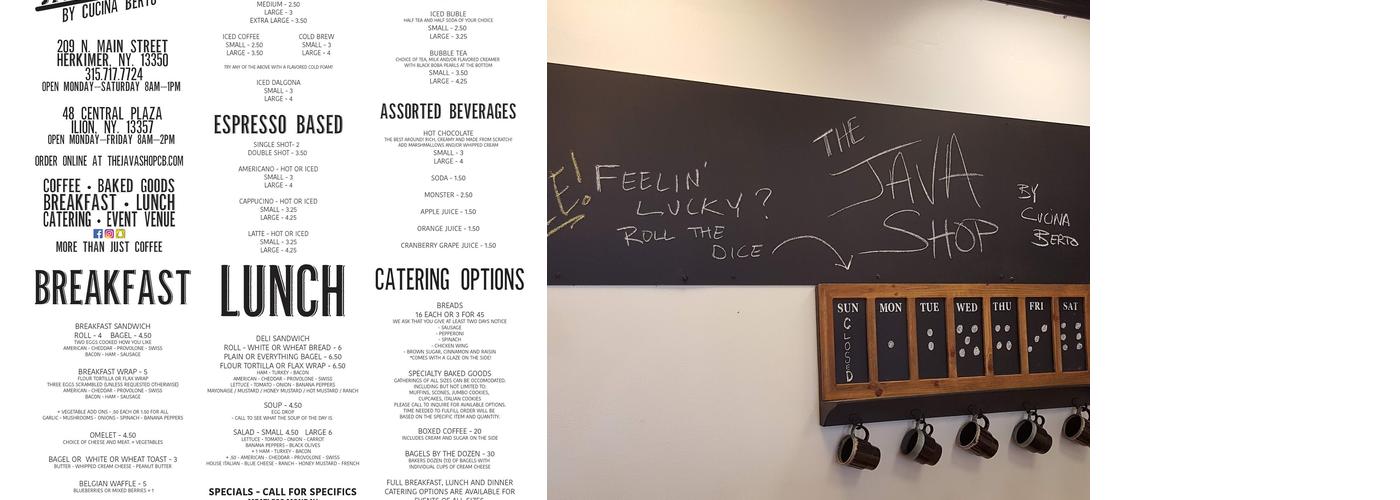 BY CUCINA BERTO
209 N. MAIN STREET
HERKIMER, NY. 13350
315.717.7724
OPEN MONDAY-SATURDAY 8AM-1PM
48 CENTRAL PLAZA
ILION, NY. 13357
OPEN MONDAY-FRIDAY 8AM-2PM
ORDER ONLINE AT THEJAVASHOPCB.COM
COFFEE • BAKED GOODS
BREAKFAST • LUNCH
CATERING • EVENT VENUE
MORE THAN JUST COFFEE
BREAKFAST
BREAKFAST SANDWICH
ROLL - 4 BAGEL - 4.50
TWO EGGS COOKED HOW YOU LIKE
AMERICAN - CHEDDAR - PROVOLONE - SWISS
BACON - HAM - SAUSAGE
BREAKFAST WRAP - 5
FLOUR TORTILLA OR FLAX WRAP
THREE EGGS SCRAMBLED (UNLESS REQUESTED OTHERWISE)
AMERICAN - CHEDDAR - PROVOLONE - SWISS
BACON - HAM - SAUSAGE
+ VEGETABLE ADD ONS - .50 EACH OR 1.50 FOR ALL
GARLIC - MUSHROOMS - ONIONS - SPINACH - BANANA PEPPERS
OMELET - 4.50
CHOICE OF CHEESE AND MEAT. + VEGETABLES
BAGEL OR WHITE OR WHEAT TOAST - 3
BUTTER - WHIPPED CREAM CHEESE - PEANUT BUTTER
BELGIAN WAFFLE - 5
BLUEBERRIES OR MIXED BERRIES + 1
MEDIUM - 2.50
LARGE - 3
EXTRA LARGE - 3.50
ICED COFFEE
SMALL - 2.50
LARGE - 3.50
COLD BREW
SMALL - 3
LARGE - 4
TRY ANY OF THE ABOVE WITH A FLAVORED COLD FOAM!
ICED DALGONA
SMALL - 3
LARGE - 4
ESPRESSO BASED
SINGLE SHOT- 2
DOUBLE SHOT - 3.50
AMERICANO - HOT OR ICED
SMALL - 3
LARGE - 4
CAPPUCINO - HOT OR ICED
SMALL - 3.25
LARGE - 4.25
LATTE - HOT OR ICED
SMALL - 3.25
LARGE - 4.25
LUNCH
DELI SANDWICH
ROLL - WHITE OR WHEAT BREAD - 6
PLAIN OR EVERYTHING BAGEL - 6.50
FLOUR TORTILLA OR FLAX WRAP - 6.50
HAM - TURKEY - BACON
AMERICAN - CHEDDAR - PROVOLONE - SWISS
LETTUCE - TOMATO - ONION - BANANA PEPPERS
MAYONAISE / MUSTARD / HONEY MUSTARD / HOT MUSTARD / RANCH
SOUP - 4.50
EGG DROP
- CALL TO SEE WHAT THE SOUP OF THE DAY IS
SALAD - SMALL 4.50 LARGE 6
LETTUCE - TOMATO - ONION - CARROT
BANANA PEPPERS - BLACK OLIVES
+ 1 HAM - TURKEY - BACON
+ .50 - AMERICAN - CHEDDAR - PROVOLONE - SWISS
HOUSE ITALIAN - BLUE CHEESE - RANCH - HONEY MUSTARD - FRENCH
SPECIALS - CALL FOR SPECIFICS
ICED BUBLE
HALF TEA AND HALF SODA OF YOUR CHOICE
SMALL - 2.50
LARGE - 3.25
BUBBLE TEA
CHOICE OF TEA, MILK AND/OR FLAVORED CREAMER
WITH BLACK BOBA PEARLS AT THE BOTTOM
SMALL - 3.50
LARGE - 4.25
ASSORTED BEVERAGES
HOT CHOCOLATE
THE BEST AROUND! RICH, CREAMY AND MADE FROM SCRATCH!
ADD MARSHMALLOWS AND/OR WHIPPED CREAM
SMALL - 3
LARGE - 4
SODA - 1.50
MONSTER - 2.50
APPLE JUICE - 1.50
ORANGE JUICE - 1.50
CRANBERRY GRAPE JUICE - 1.50
CATERING OPTIONS
BREADS
16 EACH OR 3 FOR 45
WE ASK THAT YOU GIVE AT LEAST TWO DAYS NOTICE
- SAUSAGE
- PEPPERONI
- SPINACH
- CHICKEN WING
- BROWN SUGAR, CINNAMON AND RAISIN
*COMES WITH A GLAZE ON THE SIDE!
SPECIALTY BAKED GOODS
GATHERINGS OF ALL SIZES CAN BE OCCOMODATED,
INCLUDING BUT NOT LIMITED TO;
MUFFINS, SCONES, JUMBO COOKIES,
CUPCAKES, ITALIAN COOKIES
PLEASE CALL TO INQUIRE FOR AVAILABLE OPTIONS.
TIME NEEDED TO FULFILL ORDER WILL BE
BASED ON THE SPECIFIC ITEM AND QUANTITY.
BOXED COFFEE - 20
INCLUDES CREAM AND SUGAR ON THE SIDE
BAGELS BY THE DOZEN - 30
BAKERS DOZEN (13) OF BAGELS WITH
INDIVIDUAL CUPS OF CREAM CHEESE
FULL BREAKFAST, LUNCH AND DINNER
CATERING OPTIONS ARE AVAILABLE FOR
FEELIN'
LUCKY?
ROLL THE
DICE
THE
JAVA
SHOP
BY
CUCINA
BERTO
SUN MON TUE WED THU FRI SAT
CLOSED